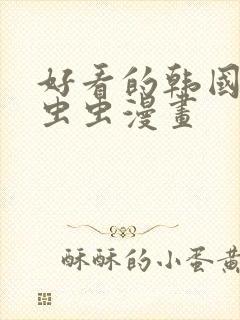 好看的韩國
虫虫漫畫
酥酥的小蛋黄